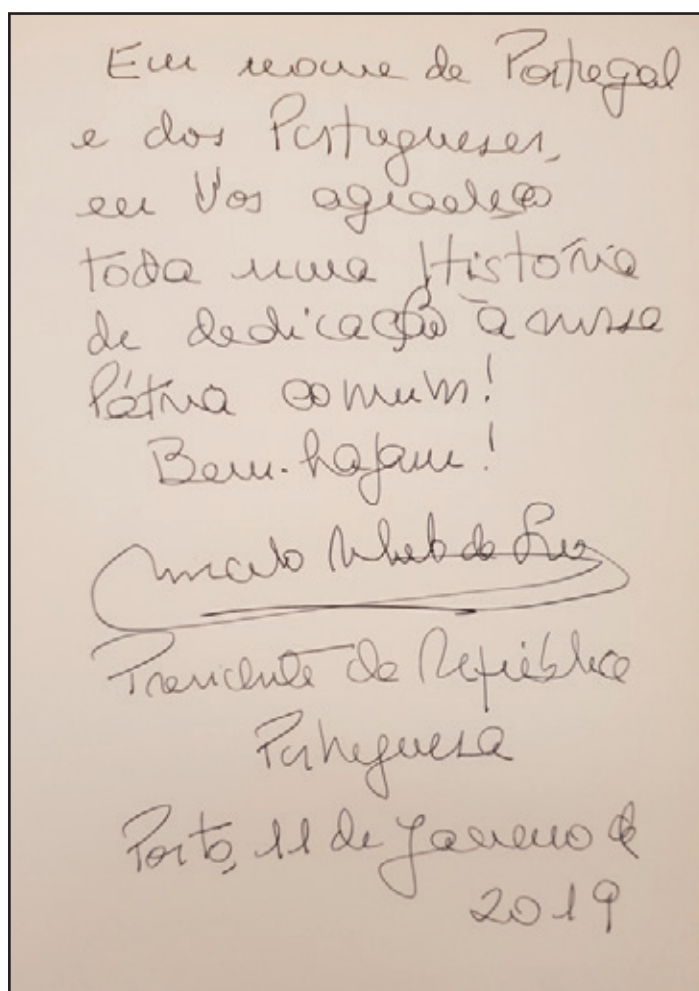 Em nome de Portugal
e dos Portugueses,
eu Vos agradeço
toda uma História
de dedicação à nossa
Pátria comum!
Bem-hajam!
Marcelo Rebelo de Sousa
Presidente da República
Portuguesa
Porto, 11 de Janeiro de
2019